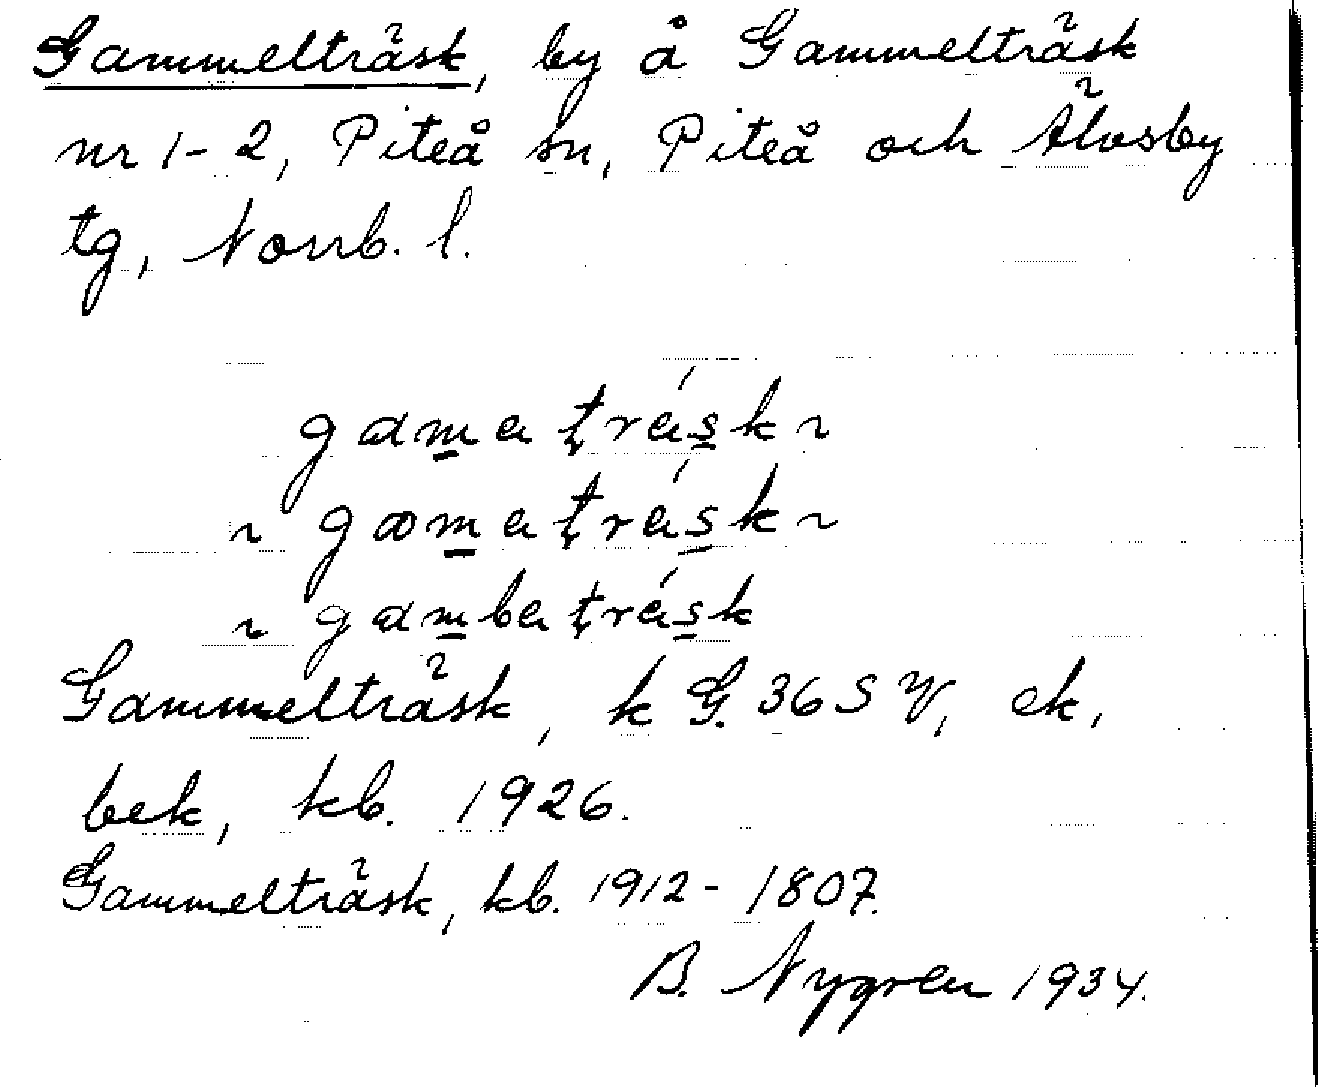 Gammelträsk, by å Gammelträsk
nr 1-2, Piteå sn, Piteå och Älvsby
tg, Norrb. l.
gamaträsk ~
~ gæmaträsk ~
~ gambaträsk
Gammelträsk, k G. 36 S V, ek,
bek, kb. 1926.
Gammelträsk, kb. 1912-1807.
B. Nygren 1934.